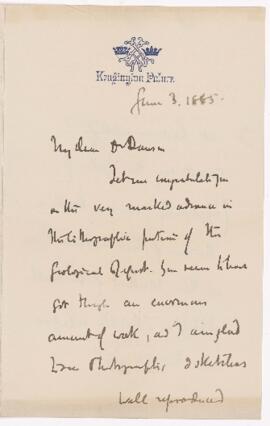 Kensington Palace
June 3. 1885.
My dear Dr Dawson
Let me congratulate you
on the very marked advance in
the lithographic portions of the
Geological Report. You seem to have
got through an enormous
amount of work, and I am glad
to see Photographs, & sketches
well reproduced